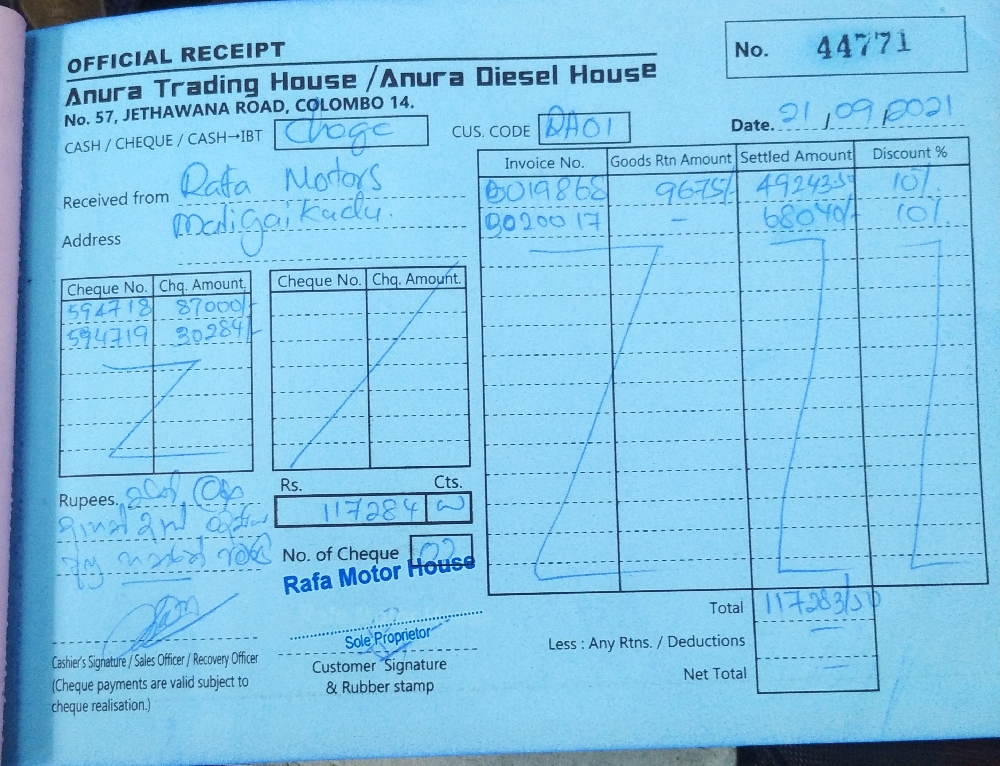 OFFICIAL RECEIPT
No. 44771
Anura Trading House /Anura Diesel House
No. 57, JETHAWANA ROAD, COLOMBO 14.
CASH / CHEQUE / CASH→IBT
CUS. CODE DA01
Date. 21/09/2021
Received from Rafa Motors
Address Maligaikadu.
Invoice No. Goods Rtn Amount Settled Amount Discount %
B019868 9675/- 49243.50 10%
B020017 - 68040/- 10%
Cheque No. Chq. Amount.
594718 87000/-
594719 30284/-
Cheque No. Chq. Amount.
Rupees.
Rs. Cts.
117284
No. of Cheque 02
Rafa Motor House
Sole Proprietor
Cashier's Signature / Sales Officer / Recovery Officer
(Cheque payments are valid subject to
cheque realisation.)
Customer Signature
& Rubber stamp
Total 117283/50
Less : Any Rtns. / Deductions
Net Total